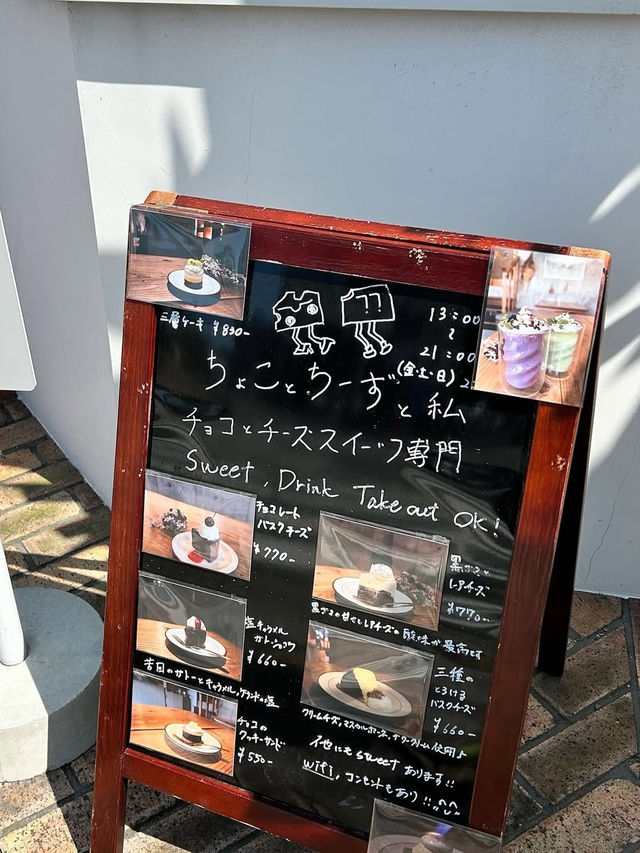 三層ケーキ ¥830-
13:00
〜
21:00
(金・土・日)
ちょことちーずと私
チョコとチーズスイーツ専門
Sweet, Drink Take out OK!
チョコレート
バスクチーズ
¥770-
レアチーズ
¥770-
黒ごまの甘さとレアチーズの酸味が最高です
塩キャラメル
ガトーショコラ
¥660-
三種の
とろける
バスクチーズ
¥660-
クリームチーズ,マスカルポーネ,サワークリーム使用♪
チョコの
クッキーサンド
¥550-
他にもsweetあります!!
wifi,コンセントもあり!!